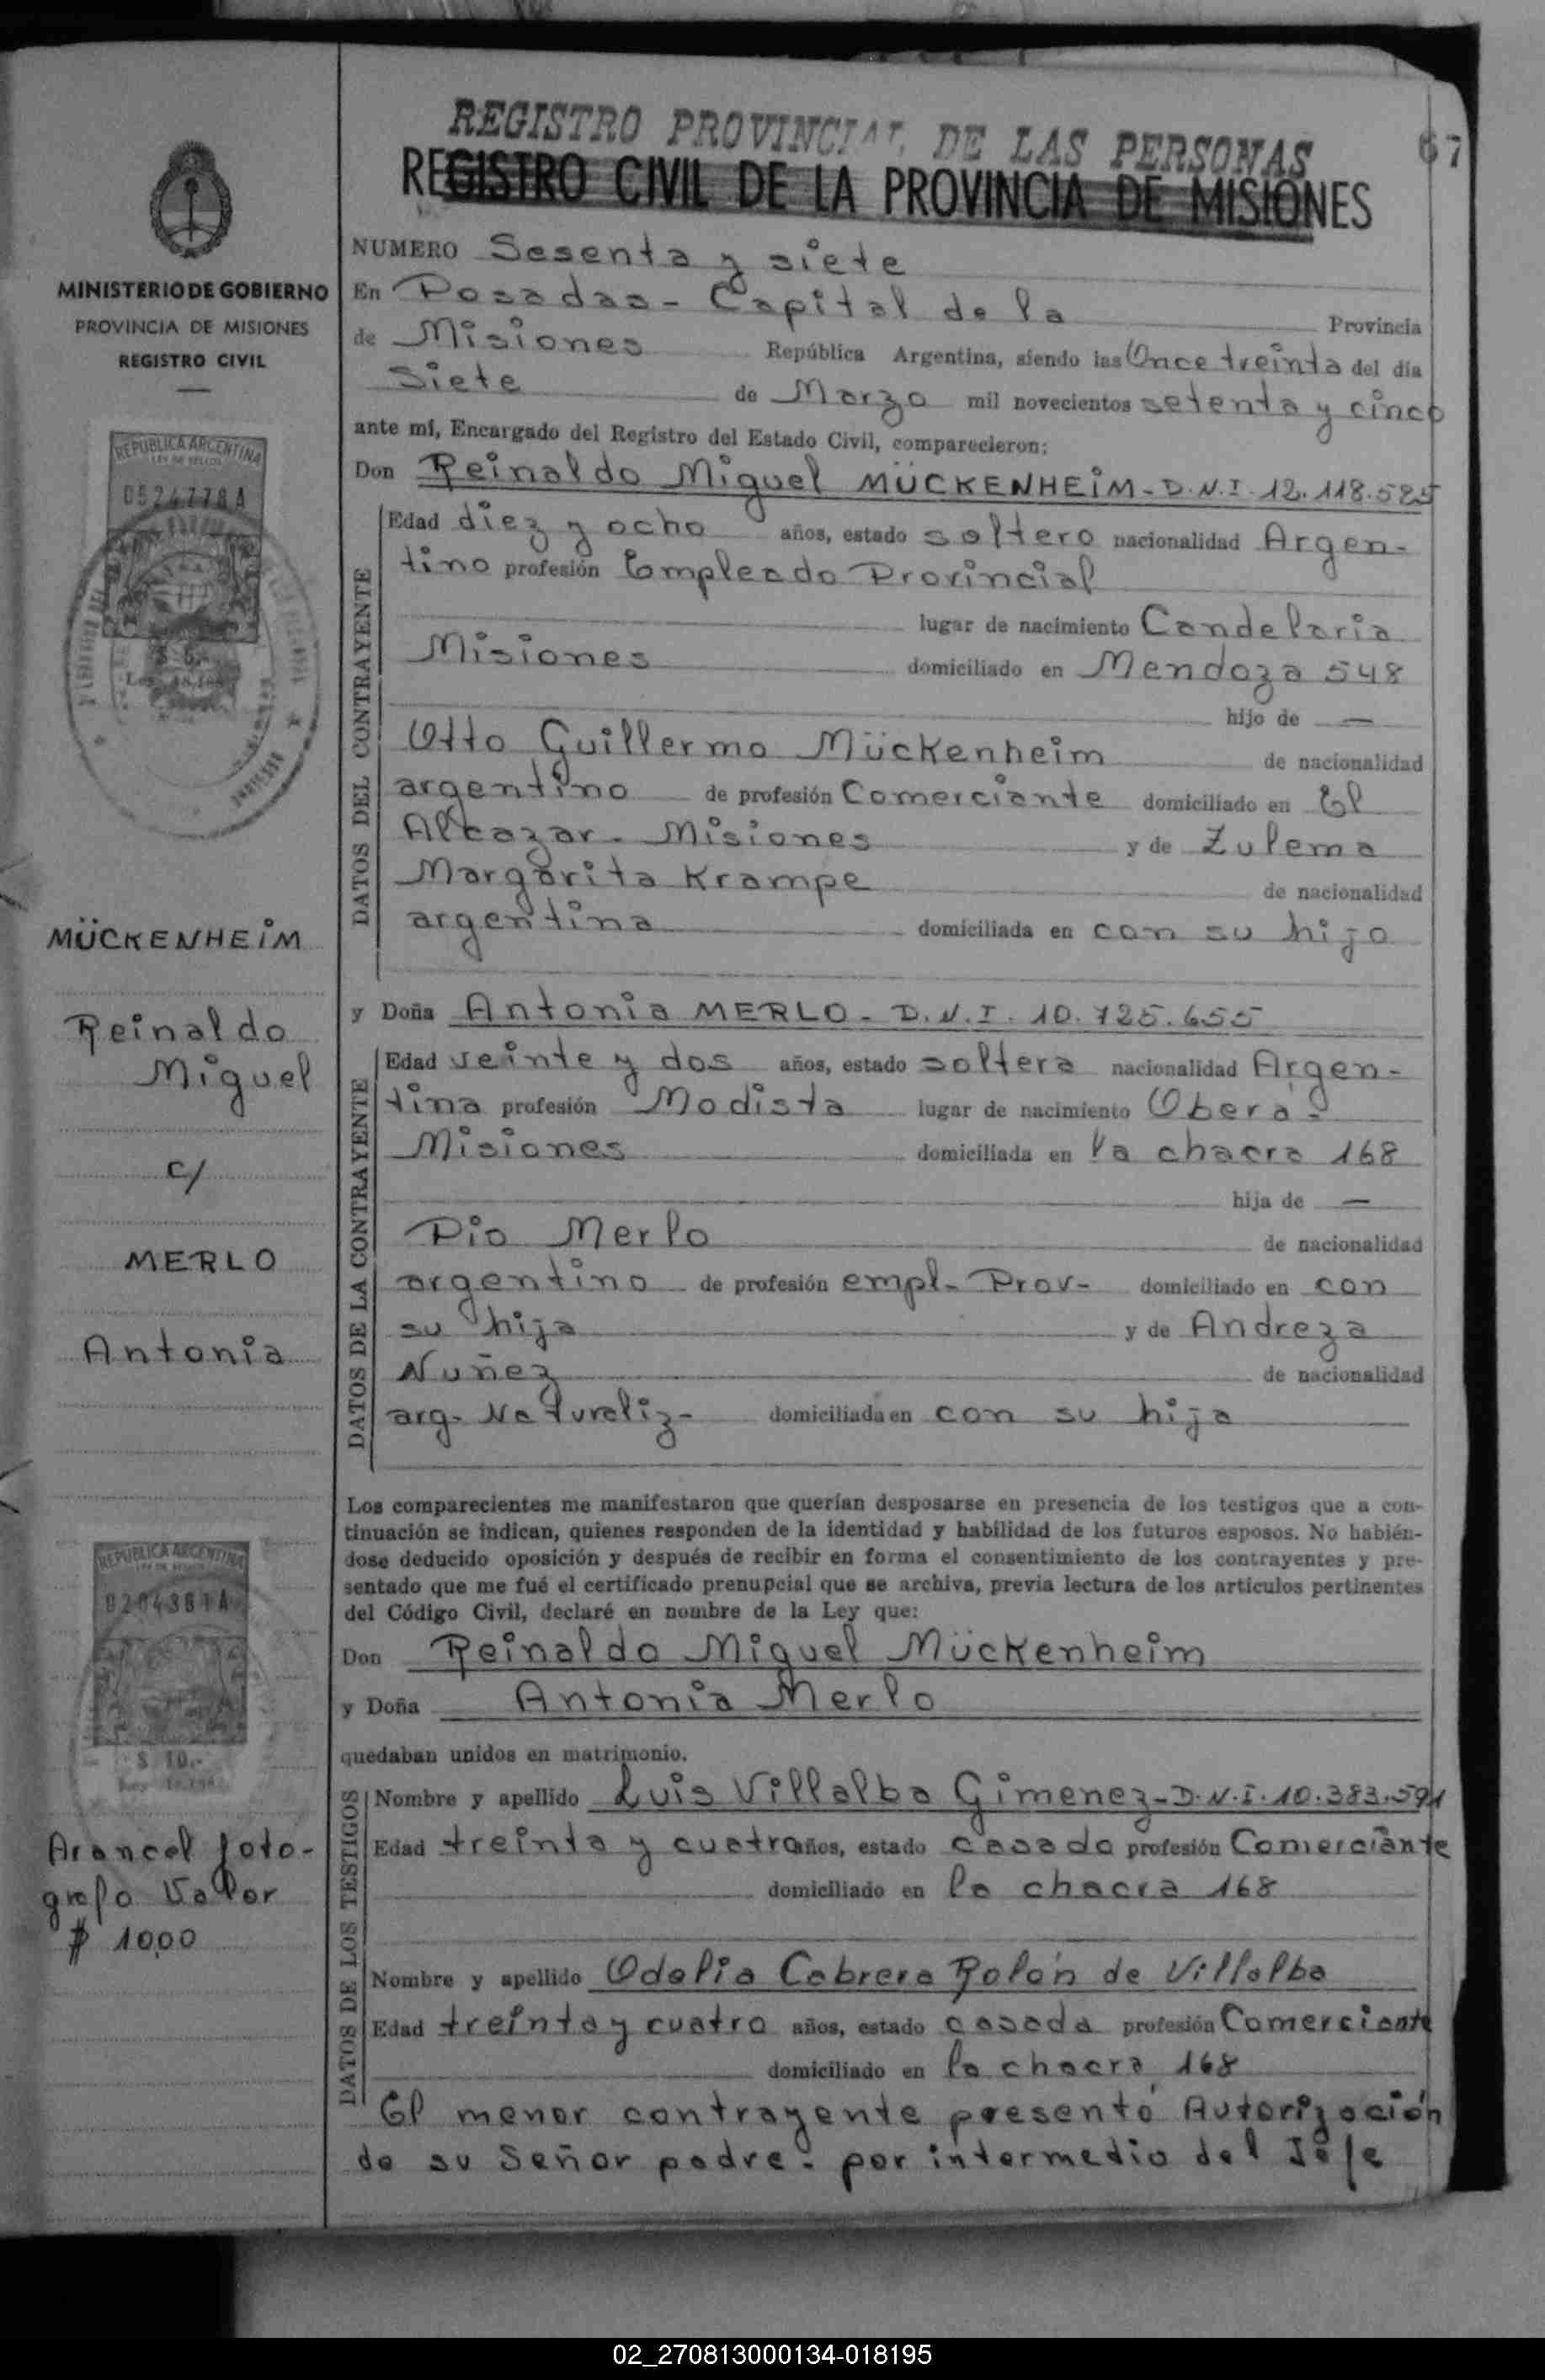 REGISTRO PROVINCIAL DE LAS PERSONAS
67
REGISTRO CIVIL DE LA PROVINCIA DE MISIONES
MINISTERIO DE GOBIERNO
PROVINCIA DE MISIONES
REGISTRO CIVIL
REPUBLICA ARGENTINA
LEY DE SELLOS
MÜCKENHEIM
Reinaldo
Miguel
c/
MERLO
Antonia
REPUBLICA ARGENTINA
$ 10.-
Arancel foto-
grafo Valor
$ 10,00
NUMERO Sesenta y siete
En Posadas - Capital de la Provincia
de Misiones República Argentina, siendo las Once treinta del día
Siete de Marzo mil novecientos setenta y cinco
ante mí, Encargado del Registro del Estado Civil, comparecieron:
Don Reinaldo Miguel MÜCKENHEIM - D.N.I. 12.118.585
DATOS DEL CONTRAYENTE
Edad diez y ocho años, estado soltero nacionalidad Argen-
tino profesión Empleado Provincial
lugar de nacimiento Candelaria
Misiones domiciliado en Mendoza 548
hijo de —
Otto Guillermo Mückenheim de nacionalidad
argentino de profesión Comerciante domiciliado en El
Alcazar - Misiones y de Zulema
Margarita Krampe de nacionalidad
argentina domiciliada en con su hijo
y Doña Antonia MERLO - D.N.I. 10.725.655
DATOS DE LA CONTRAYENTE
Edad veinte y dos años, estado soltera nacionalidad Argen-
tina profesión Modista lugar de nacimiento Obera -
Misiones domiciliada en la chacra 168
hija de —
Pio Merlo de nacionalidad
argentino de profesión empl- Prov- domiciliado en con
su hija y de Andreza
Nuñez de nacionalidad
arg- Naturaliz- domiciliada en con su hija
Los comparecientes me manifestaron que querían desposarse en presencia de los testigos que a con-
tinuación se indican, quienes responden de la identidad y habilidad de los futuros esposos. No habién-
dose deducido oposición y después de recibir en forma el consentimiento de los contrayentes y pre-
sentado que me fué el certificado prenupcial que se archiva, previa lectura de los artículos pertinentes
del Código Civil, declaré en nombre de la Ley que:
Don Reinaldo Miguel Mückenheim
y Doña Antonia Merlo
quedaban unidos en matrimonio.
DATOS DE LOS TESTIGOS
Nombre y apellido Luis Villalba Gimenez - D.N.I. 10.383.591
Edad treinta y cuatro años, estado casado profesión Comerciante
domiciliado en la chacra 168
Nombre y apellido Odalia Cabrera Rolón de Villalba
Edad treinta y cuatro años, estado casada profesión Comerciante
domiciliado en la chacra 168
El menor contrayente presentó Autorización
de su Señor padre - por intermedio del Jefe
02_270813000134-018195